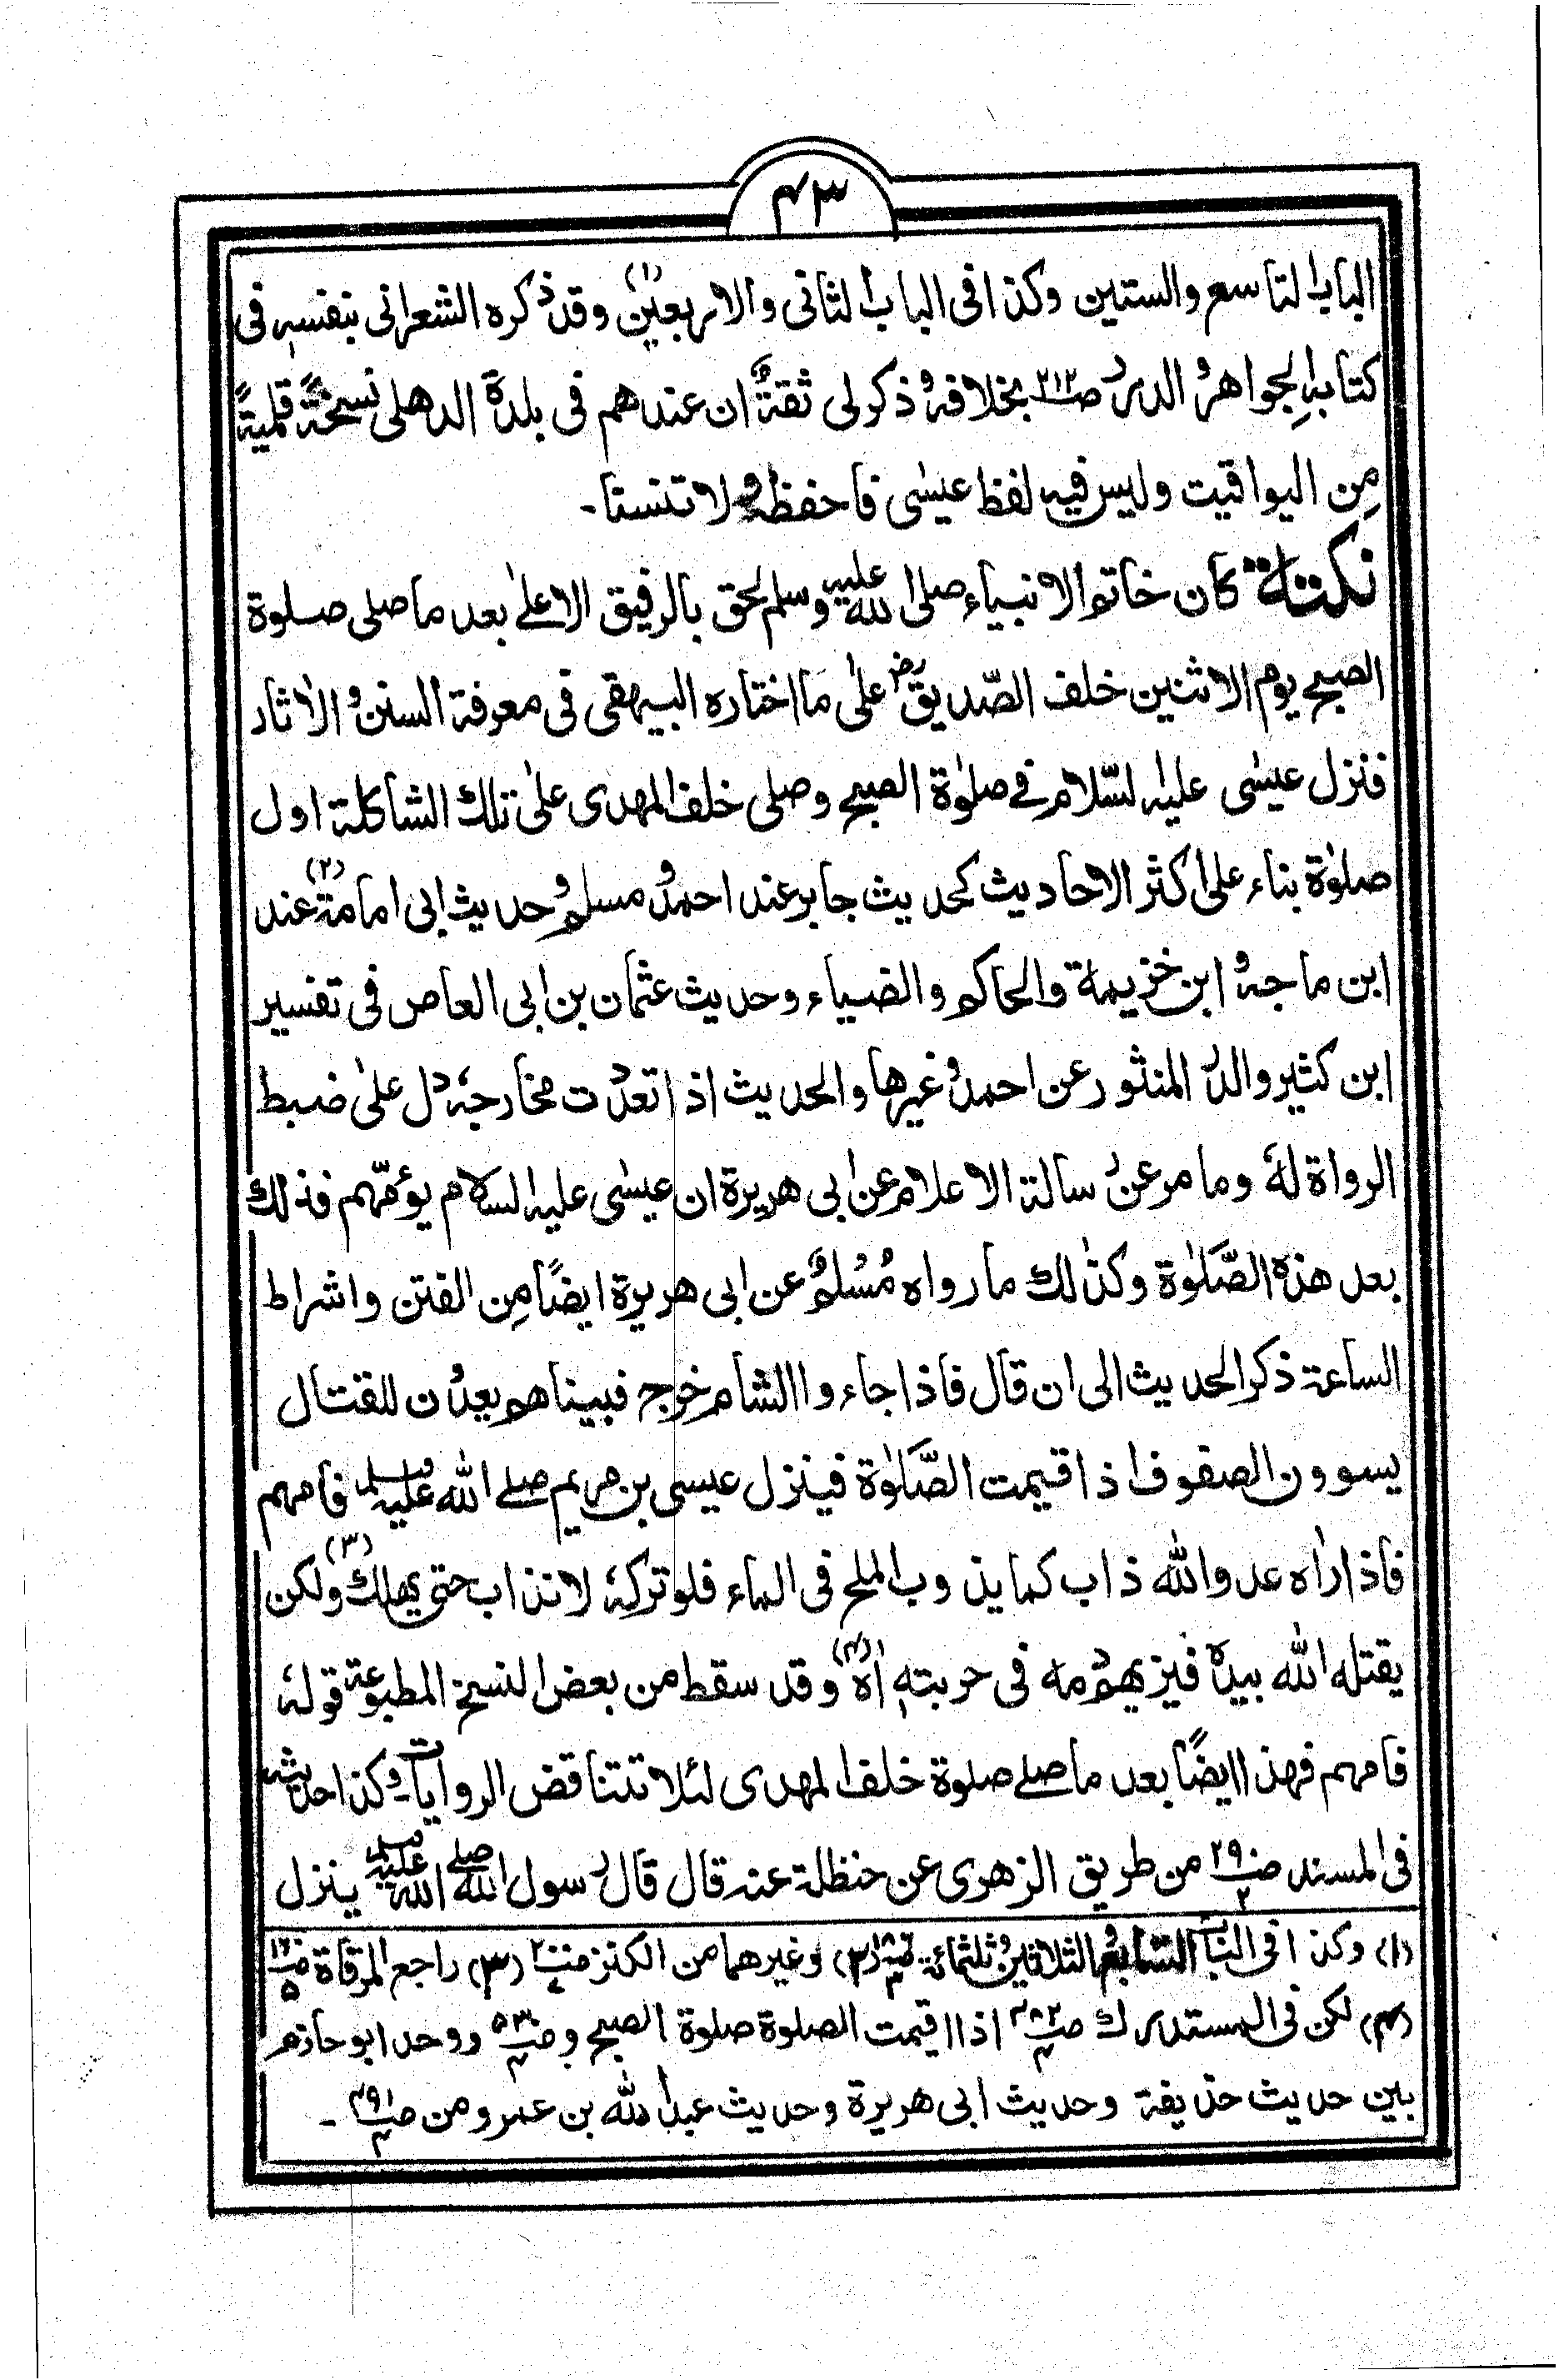 ۴۳
الباب التاسع والستين وكذا فى الباب الثانى والاربعين (١) وقد ذكره الشعرانى بنفسه فى
كتابه الجواهر والدرر ص٢١٢ بخلافه وذكر لى ثقة ان عندهم فى بلدة الدهلى نسخةً قلميةً
مِن اليواقيت وليس فيه لفظ عيسٰى فاحفظه ولا تنسنا۔
نكتة كان خاتم الانبياء صلى الله عليه وسلم لحق بالرفيق الاعلےٰ بعد ما صلى صلوة
الصبح يوم الاثنين خلف الصّديق رض علٰى ما اختاره البيهقى فى معرفة السنن والاٰثار
فنزل عيسٰى عليه السّلام فے صلوٰة الصبح وصلى خلف المهدى علٰى تلك الشاكلة اول
صلوٰة بناء علٰى اكثر الاحاديث كحديث جابر عند احمد ومسلم وحديث ابى امامة (٢) عند
ابن ماجه وابن خزيمة والحاكم والضياء وحديث عثمان بن ابى العاص فى تفسير
ابن كثير والدر المنثور عن احمد وغيرها والحديث اذا تعددت مخارجهٗ دل علٰى ضبط
الرواة لهٗ وما مر عن رسالة الاعلام عن ابى هريرة ان عيسٰى عليه السلام يؤمّهم فذلك
بعد هذه الصَّلوٰة وكذٰلك ما رواه مُسْلمٌ عن ابى هريرة ايضًا مِن الفتن واشراط
الساعة ذكر الحديث الى ان قال فاذا جاءوا الشام خرج فبينا هم يعدّون للقتال
يسوون الصفوف اذ اقيمت الصَّلوٰة فينزل عيسى بن مريم صلے الله عليه وسلم فامهم
فاذا راٰه عدو الله ذاب كما يذوب الملح فى الماء فلو تركهٗ لانذاب حتى يهلك (٣) ولكن
يقتله الله بيده فيريهم دمه فى حربتهٖ اه (۴) وقد سقط من بعض النسخ المطبوعة قولهٗ
فامهم فهذا ايضًا بعد ما صلے صلوة خلف المهدى لئلا تتناقض الروايات وكذا حديثه
فى المسند ص٢٩٠ ٢ من طريق الزهرى عن حنظلة عنه قال قال رسول الله صلے الله عليه وسلم ينزل
(١) وكذا فى الباب السابع والثلاثين وثلثمائة (٢) وغيرهما من الكنز (٣) راجع المرقاة
(۴) لكن فى المستدرك ص۴٨٢ ۴ اذا اقيمت الصلوة صلوة الصبح و ص۵٣٠ ۴ ووحد ابو حازم
بين حديث حذيفة وحديث ابى هريرة وحديث عبد الله بن عمرو من ص۴٩١ ۴ ۔